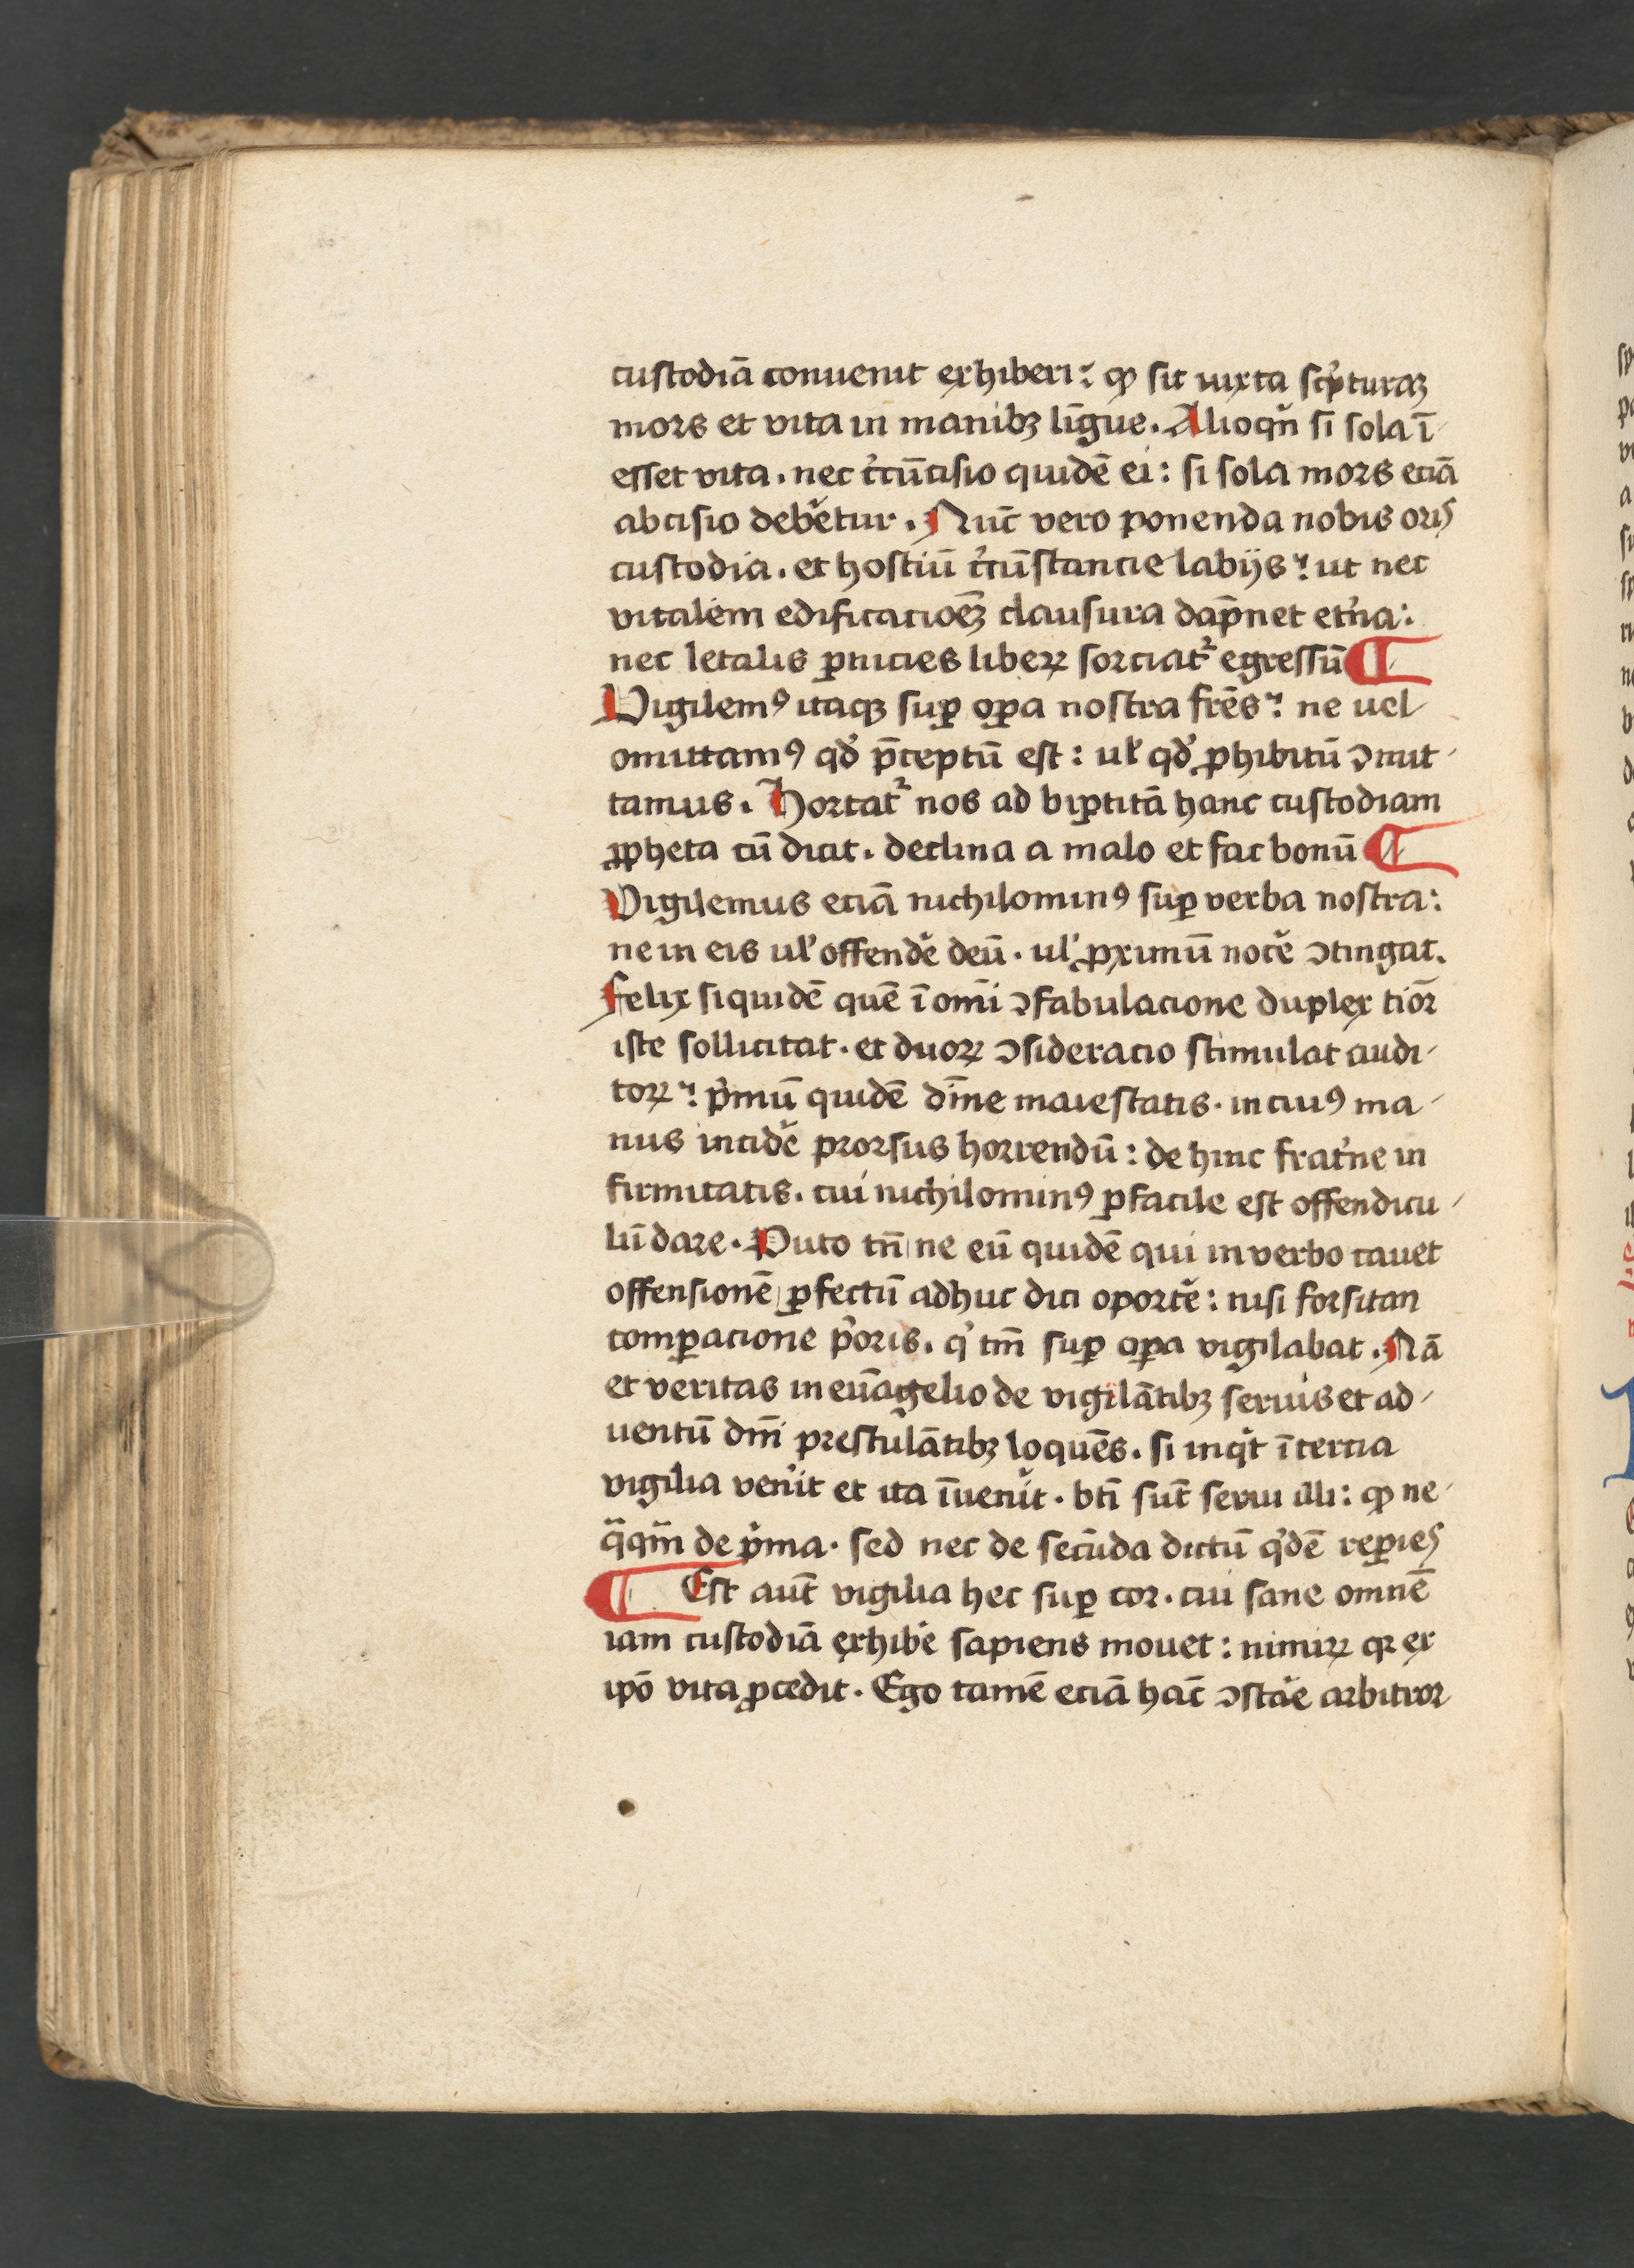 custodiā conuenit exhiberi: ꝙ sit iuxta sc̓pturaꝫ
mors et vita in manibꝫ līgue. Alioqn̄ si sola ī
esset vita. nec c̓cūcisio quidē ei: si sola mors eciā
abcisio debĕtur. Nūc vero ponenda nobis oris
custodia. et hostiū c̓cūstancie labijs: ut nec
vitalem edificacioēꝫ clausura dāpnet et̓na:
nec letalis ꝑnicies liberꝝ sorciat᷑ egressū ¶
Vigilemꝰ itaqꝫ suꝑ oꝑa nostra fr̄es: ne uel
omittamꝰ qd̓ p̄ceptū est: ul̓ qd̓ ꝓhibitū ↄmit
tamus. Hortat᷑ nos ad biꝑtitā hanc custodiam
ꝓpheta cū dicit. declina a malo et fac bonū ¶
Vigilemus eciā nichilominꝰ suꝑ verba nostra:
ne in eis ul̓ offendĕ deū. ul̓ ꝓximū nocĕ ↄtingat.
Felix siquidē quē ī om̄i ↄfabulacione duplex tiōr
iste sollicitat. et duoꝝ ↄsideracio stimulat audi
torꝝ: p̓mū quidē di̅ne maiestatis. in cuiꝰ ma
nus incidĕ prorsus horrendū: de hinc frat̓ne in
firmitatis. cui nichilominꝰ ꝑfacile est offendicu
lū dare. Puto tn̄ ne eū quidē qui in verbo cauet
offensionē ꝑfectū adhuc dici oportĕ: nisi forsitan
comꝑacione p̓oris. q̓ tm̄ suꝑ oꝑa vigilabat. Nā
et veritas in euāgelio de vigilātibꝫ seruis et ad
uentū dn̄i prestulātibꝫ loquēs. si inq̓t ī tercia
vigilia ven̓it et ita īuen̓it. bt̄i sūt serui illi: ꝙ ne
q̄qm̄ de p̓ma. sed nec de secūda dictū q̓dē reꝑies
¶ Est aut̄ vigilia hec suꝑ cor. cui sane omnē
iam custodiā exhibĕ sapiens mouet: nimiꝝ qꝛ ex
ipō vita ꝓcedit. Ego tamē eciā hāc ↄstăe arbitror